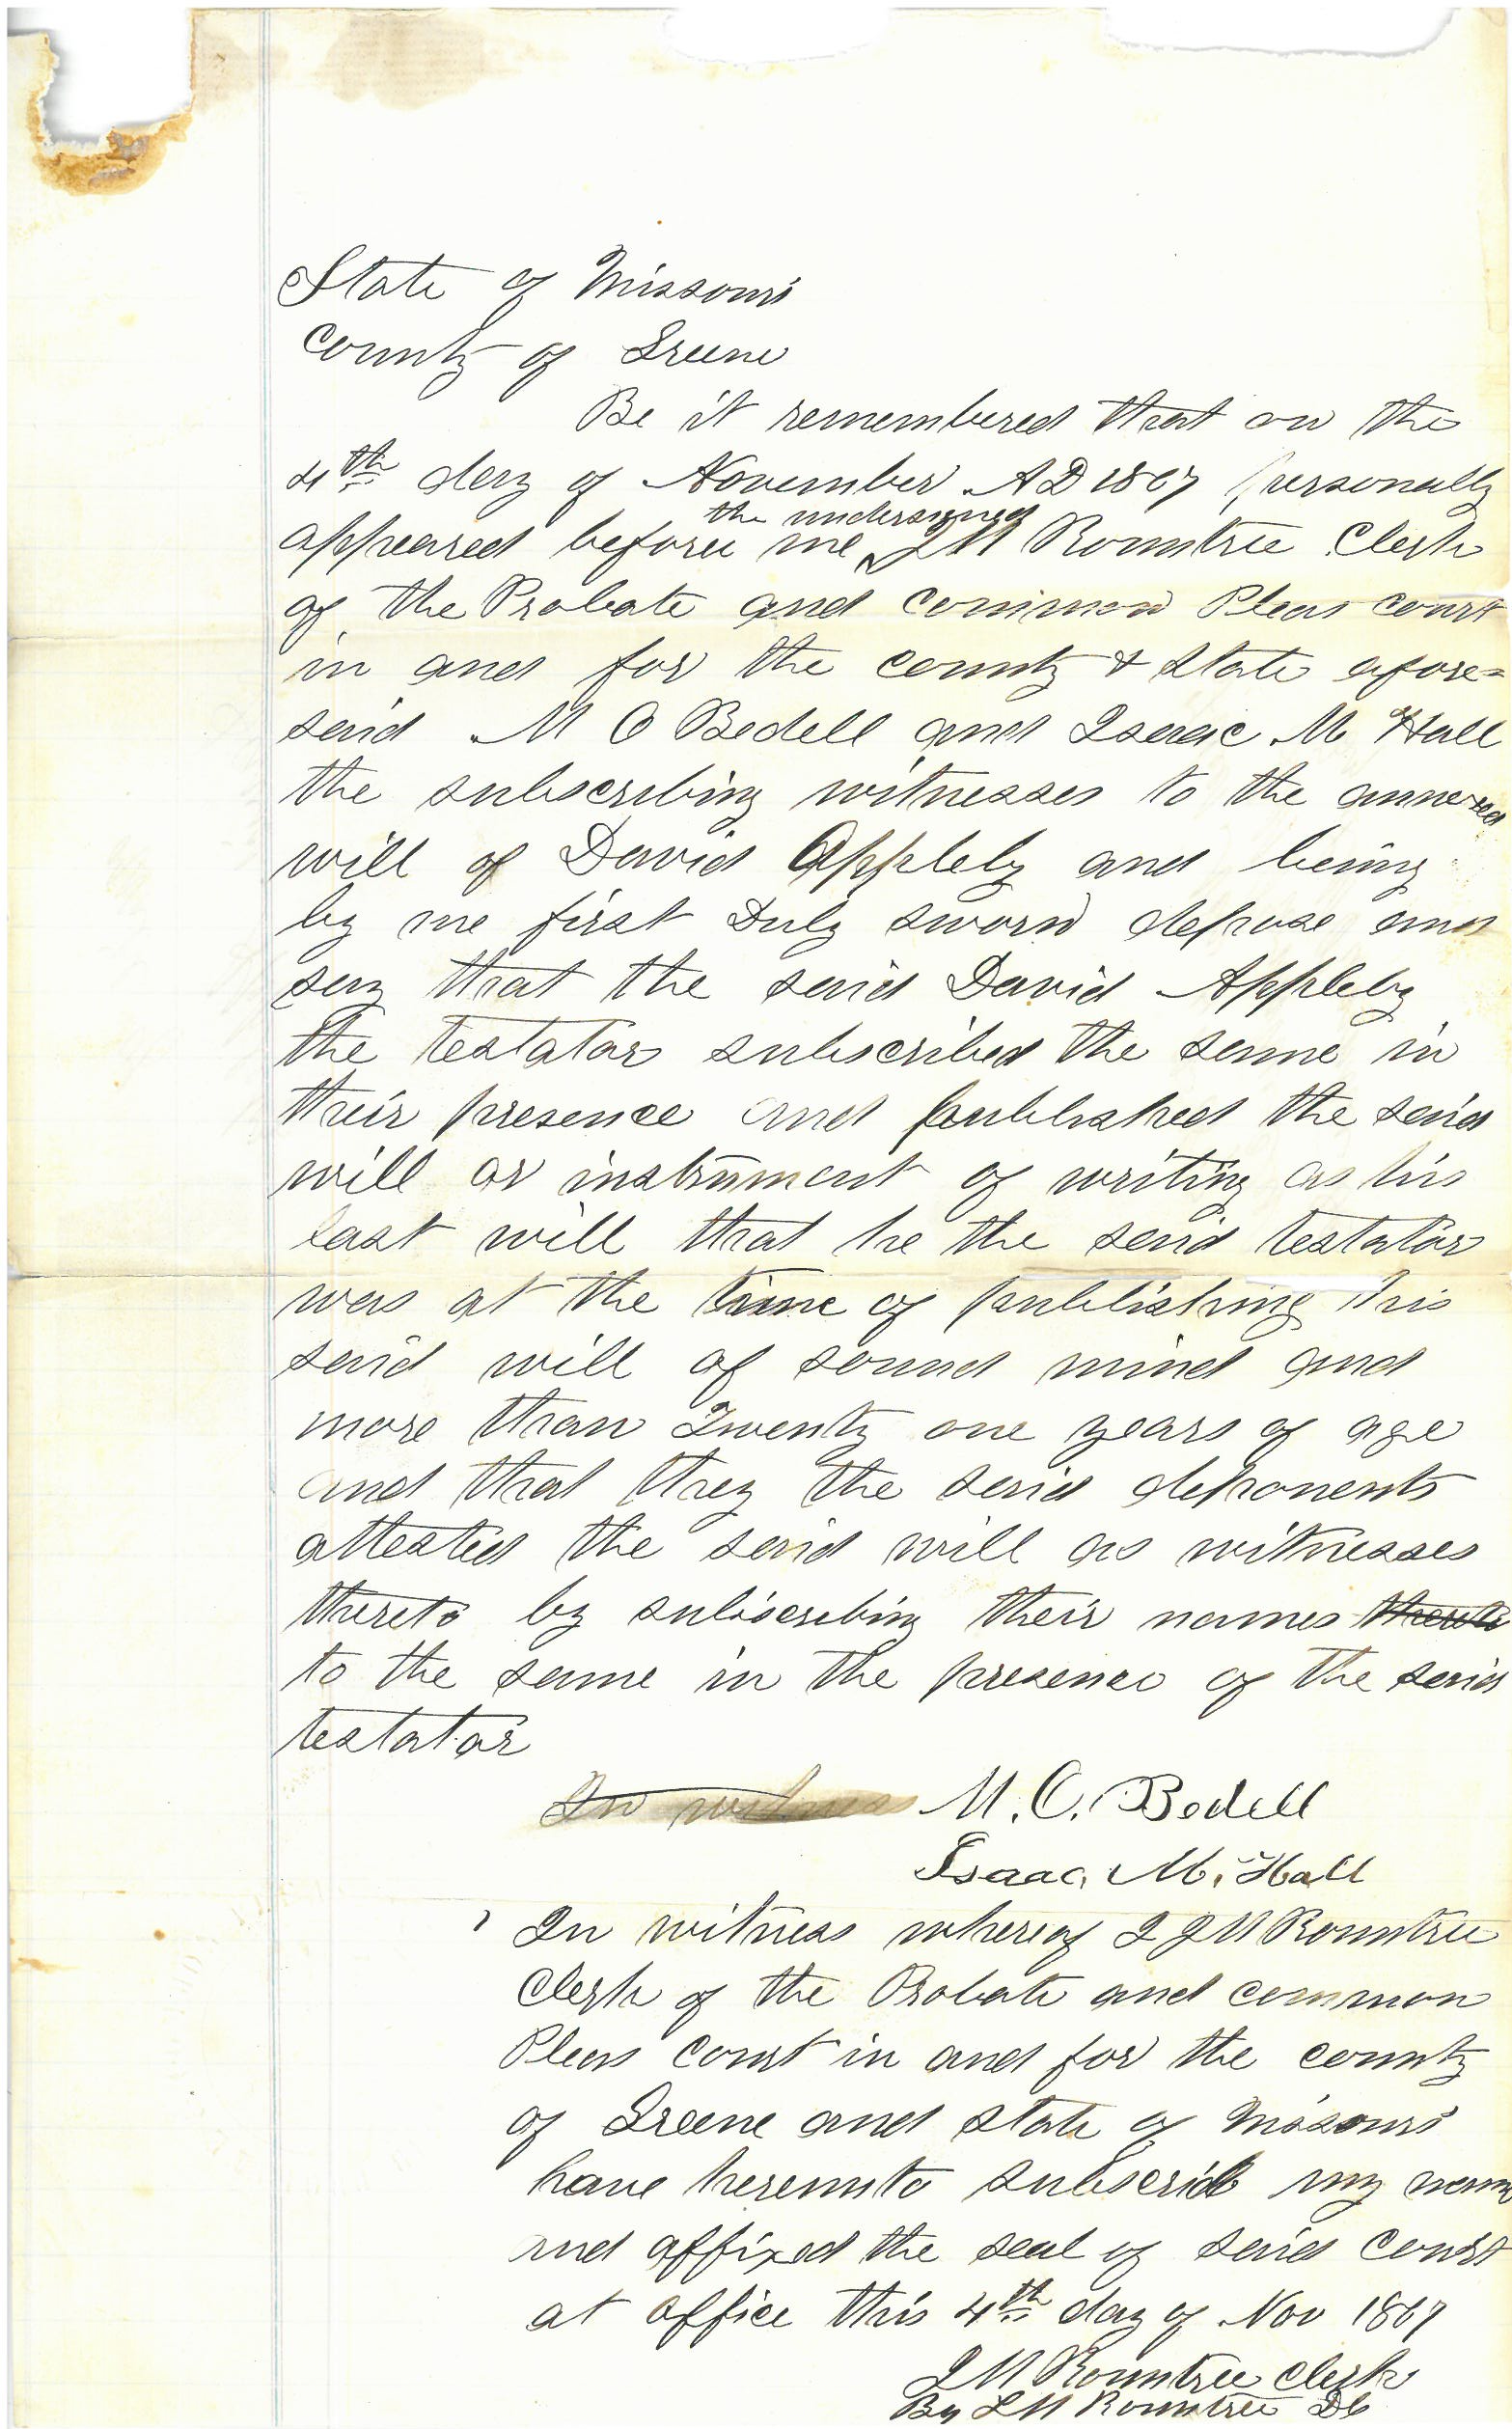 State of Missouri
County of Greene
Be it remembered that on the
4th day of November AD 1867 personally
the undersigned
appeared before me J M Rountree Clerk
of the Probate and common Pleas court
in and for the county & state afore=
said M O Bedell and Isaac M Hall
the subscribing witnesses to the annexed
will of David Appleby and being
by me first Duly sworn depose and
say that the said David Appleby
the testator subscribed the same in
their presence and published the said
will or instrument of writing as his
last will that he the said testator
was at the time of publishing his
said will of sound mind and
more than Twenty one years of age
and that they the said deponents
attested the said will as witnesses
thereto by subscribing their names thereto
to the same in the presence of the said
testator
In witness M. O. Bedell
Isaac. M. Hall
In witness whereof I J M Rountree
Clerk of the Probate and common
Pleas Court in and for the county
of Greene and state of Missouri
have hereunto subscrib my name
and affixed the seal of said Court
at office this 4th day of Nov 1867
J M Rountree Clerk
By L M Rountree DC